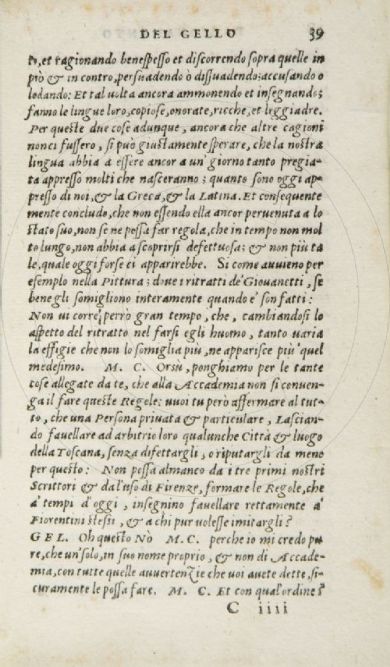 DEL GELLO 39
to, et ragionando benespesso et discorrendo sopra quelle in
prò & in contro, persuadendo ò dissuadendo: accusando o
lodando: Et tal volta ancora ammonendo et insegnando;
fanno le lingue loro, copiose, onorate, ricche, et leggiadre.
Per queste due cose adunque, ancora che altre cagioni
nonci fussero, si può giustamente sperare, che la nostra
lingua abbia a essere ancor a un' giorno tanto pregia-
ta appresso molti che nasceranno; quanto sono oggi ap-
presso di noi, & la Greca, & la Latina. Et consequente
mente concludo, che non essendo ella ancor pervenuta a lo
stato suo, non se ne possa far regola, che in tempo non mol
to lungo, non abbia a scoprirsi defettuosa; & non più ta
le, quale oggi forse ci apparirebbe. Si come avvieno per
esempio nella Pittura; dove i ritratti de' Giovanetti, se
bene gli somigliono interamente quando e' son fatti:
Non vi corre però gran tempo, che, cambiandosi lo
aspetto del ritratto nel farsi egli huomo, tanto varia
la effigie che non lo somiglia più, ne apparisce più quel
medesimo. M. C. Orsu, ponghiamo per le tante
cose allegate da te, che alla Accademia non si conven-
ga il fare queste Regole: vuoi tu però affermar al tut-
to, che una Persona privata & particulare, Lascian-
do favellare ad arbitrio loro qualunche Città & luogo
della Toscana, senza difettargli, o riputargli da meno
per questo: Non possa almanco da i tre primi nostri
Scrittori & da l'uso di Firenze, formare le Regole, che
a' tempi d'oggi, insegnino favellare rettamente a'
Fiorentini stessi, & a chi pur volesse imitargli?
GEL. Oh questo Nò M.C. perche io mi credo pu
re, che un' solo, in suo nonse proprio, & non di Accade-
mia, con tutte quelle avvertenzie che voi avete dette, si-
curamente le possa fare. M. C. Et con qual' ordine?
C iiii